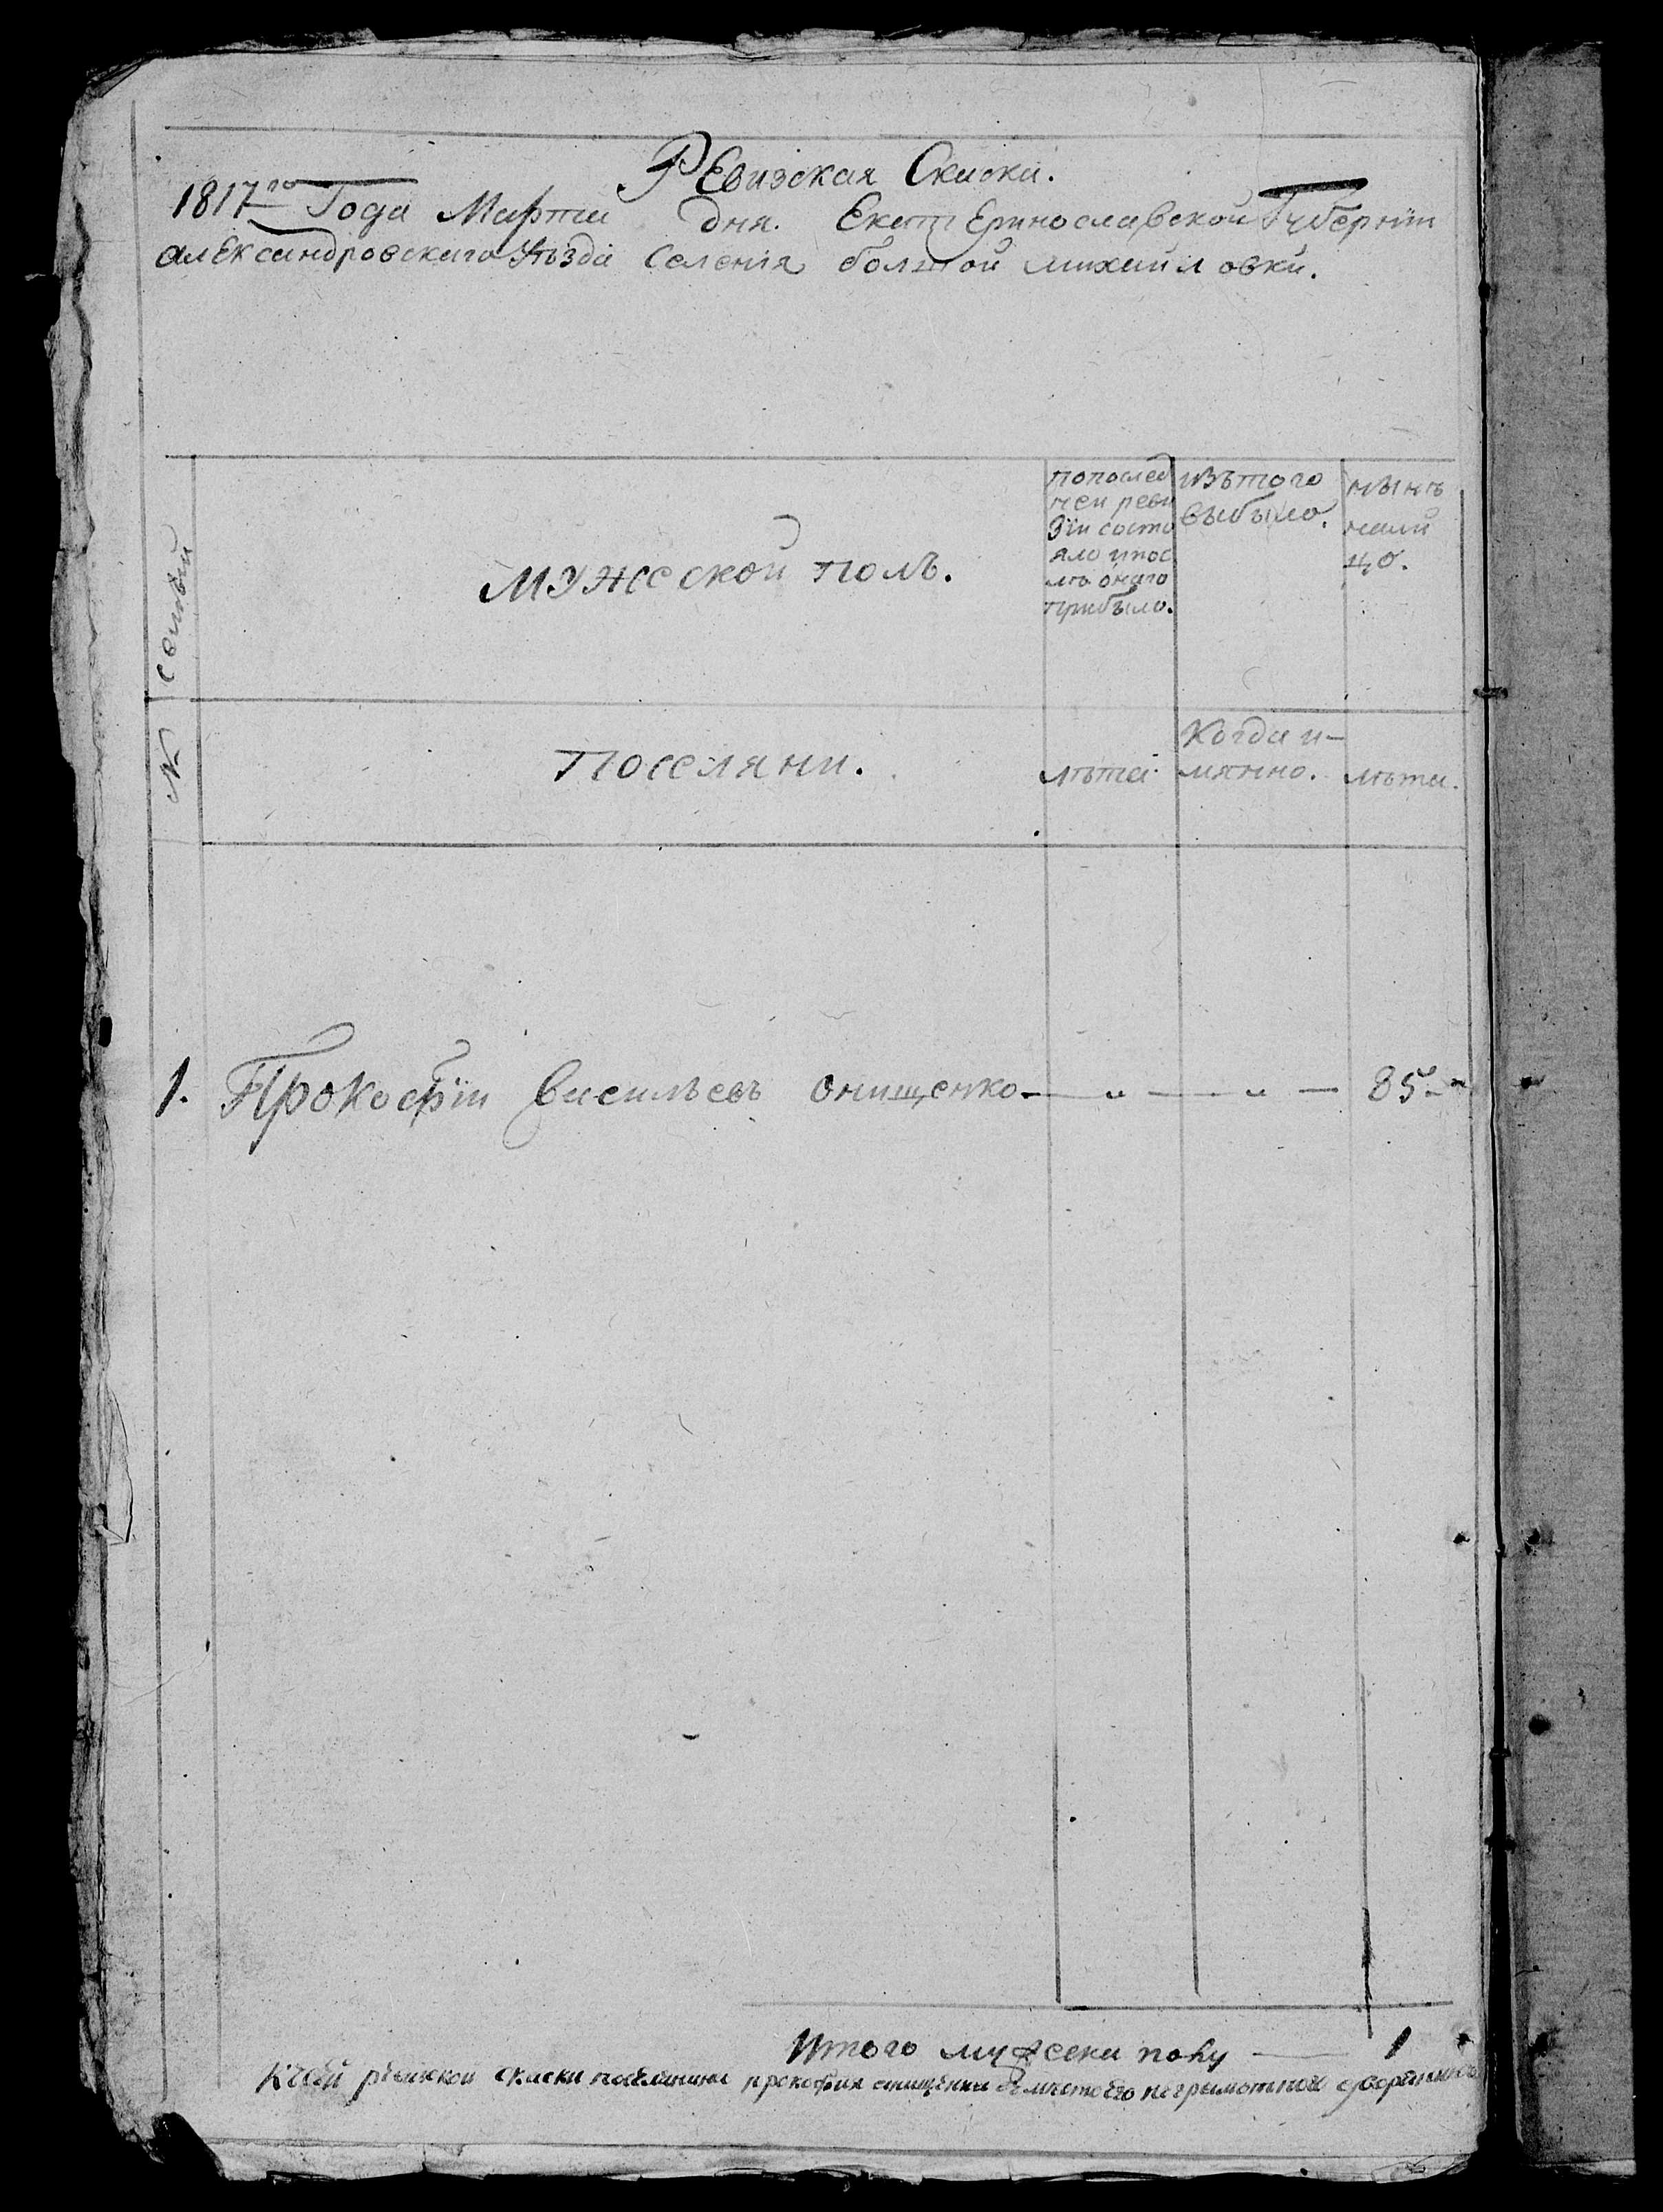 РЕвизская Скаска.
1817го Года Марта дня. ЕкатЕринославской Губернїи
алЕксандровскаго Уѣзда Селенія большой михайловки.
№ Семьи
мужеской полъ.
попослед
неи реви
зїи состо
яло ипос
лѣ онаго
прибыло.
изътого
выбыло.
нынѣ
нали
цо.
Поселяни.
лѣта.
Когда и-
мянно.
лѣта.
1. Прокофїи Васильевъ онищенко. — „ — „ — 85
Итого мужска полу — 1
Ксей скаски поселянина прокофия онищенка вместо Его неграмотного дворянинъ